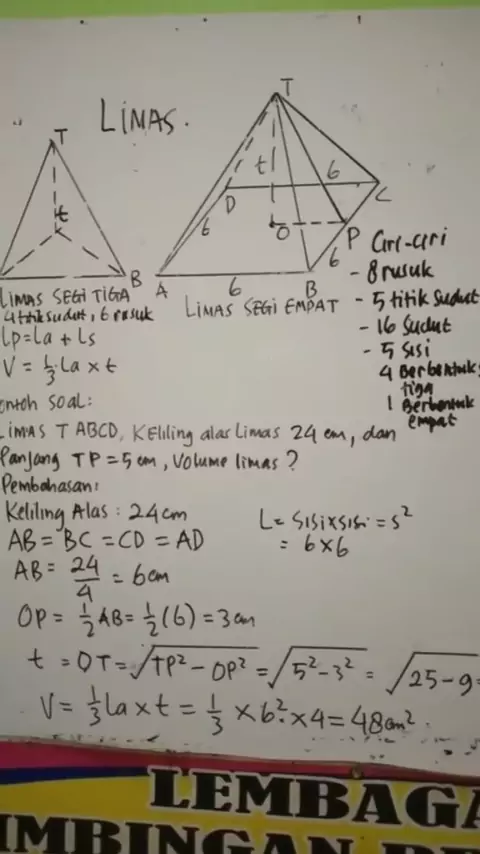 LIMAS.
T
t
B
LIMAS SEGI TIGA
4 titik sudut, 6 rusuk
Lp = La + Ls
V = 1/3 La x t
T
t
D
6
C
6
O
P
6
A
6
B
LIMAS SEGI EMPAT
Ciri-ciri
- 8 rusuk
- 5 titik sudut
- 16 sudut
- 5 sisi
4 Berbentuk
tiga
1 Berbentuk
empat
ontoh soal:
LIMAS T ABCD, Keliling alas limas 24 cm, dan
Panjang TP = 5 cm, Volume limas?
Pembahasan:
Keliling Alas : 24 cm
AB = BC = CD = AD
AB = 24/4 = 6 cm
L = sisi x sisi = s²
= 6 x 6
OP = 1/2 AB = 1/2 (6) = 3 cm
t = OT = √TP² - OP² = √5² - 3² = √25 - 9
V = 1/3 La x t = 1/3 x 6² x 4 = 48 cm².
LEMBAGA
IMBINGAN